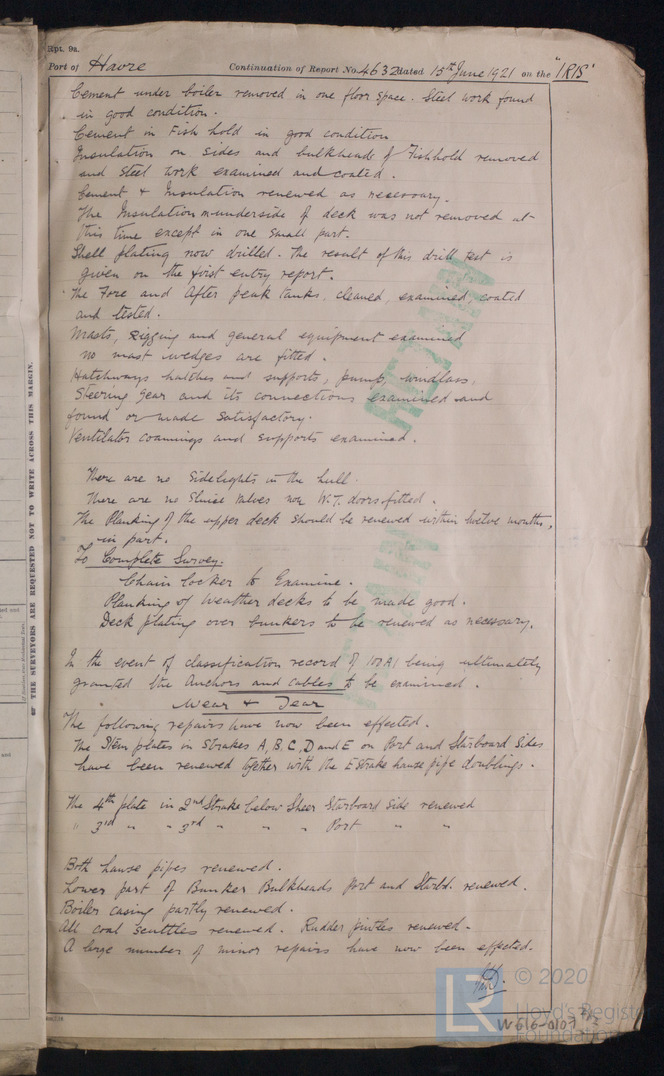 Rpt. 9a.
Port of Havre Continuation of Report No. 4632 dated 15th June 1921 on the "IRIS"
Cement under boiler removed in one floor space. Steel work found
in good condition.
Cement in Fish hold in good condition
Insulation on sides and bulkheads of Fishhold removed
and steel work examined and coated.
Cement & Insulation renewed as necessary.
The Insulation underside of deck was not removed at
this time except in one small part.
Shell plating now drilled. The result of this drill test is
given on the first entry report.
The Fore and After peak tanks, cleaned, examined, coated
and tested.
Masts, Rigging and general equipment examined
no mast wedges are fitted.
Hatchways hatches and supports, pump, windlass,
Steering gear and its connections examined and
found or made satisfactory.
Ventilator coamings and supports examined.
There are no Sidelights in the hull.
There are no Sluice Valves nor W.T. doors fitted.
The Planking of the upper deck should be renewed within twelve months,
in part.
To Complete Survey.
Chain locker to Examine.
Planking of weather decks to be made good.
Deck plating over bunkers to be renewed as necessary.
In the event of classification record of 100A1 being ultimately
granted the Anchors and cables to be examined.
Wear & Tear
The following repairs have now been effected.
The Stem plates in Strakes A, B, C, D and E on Port and Starboard Sides
have been renewed together with the E Strake hause pipe doublings.
The 4th plate in 2nd Strake below Sheer Starboard Side renewed
" 3rd " " 3rd " " " Port " "
Both hause pipes renewed.
Lower part of Bunker Bulkheads Port and Starbd. renewed.
Boiler casing partly renewed.
All coal scuttles renewed. Rudder pintles renewed.
A large number of minor repairs have now been effected.
RETAIN
RETAIN
THE SURVEYORS ARE REQUESTED NOT TO WRITE ACROSS THIS MARGIN.
LR
© 2020
Lloyd's Register
Foundation
W616-0107 2/2